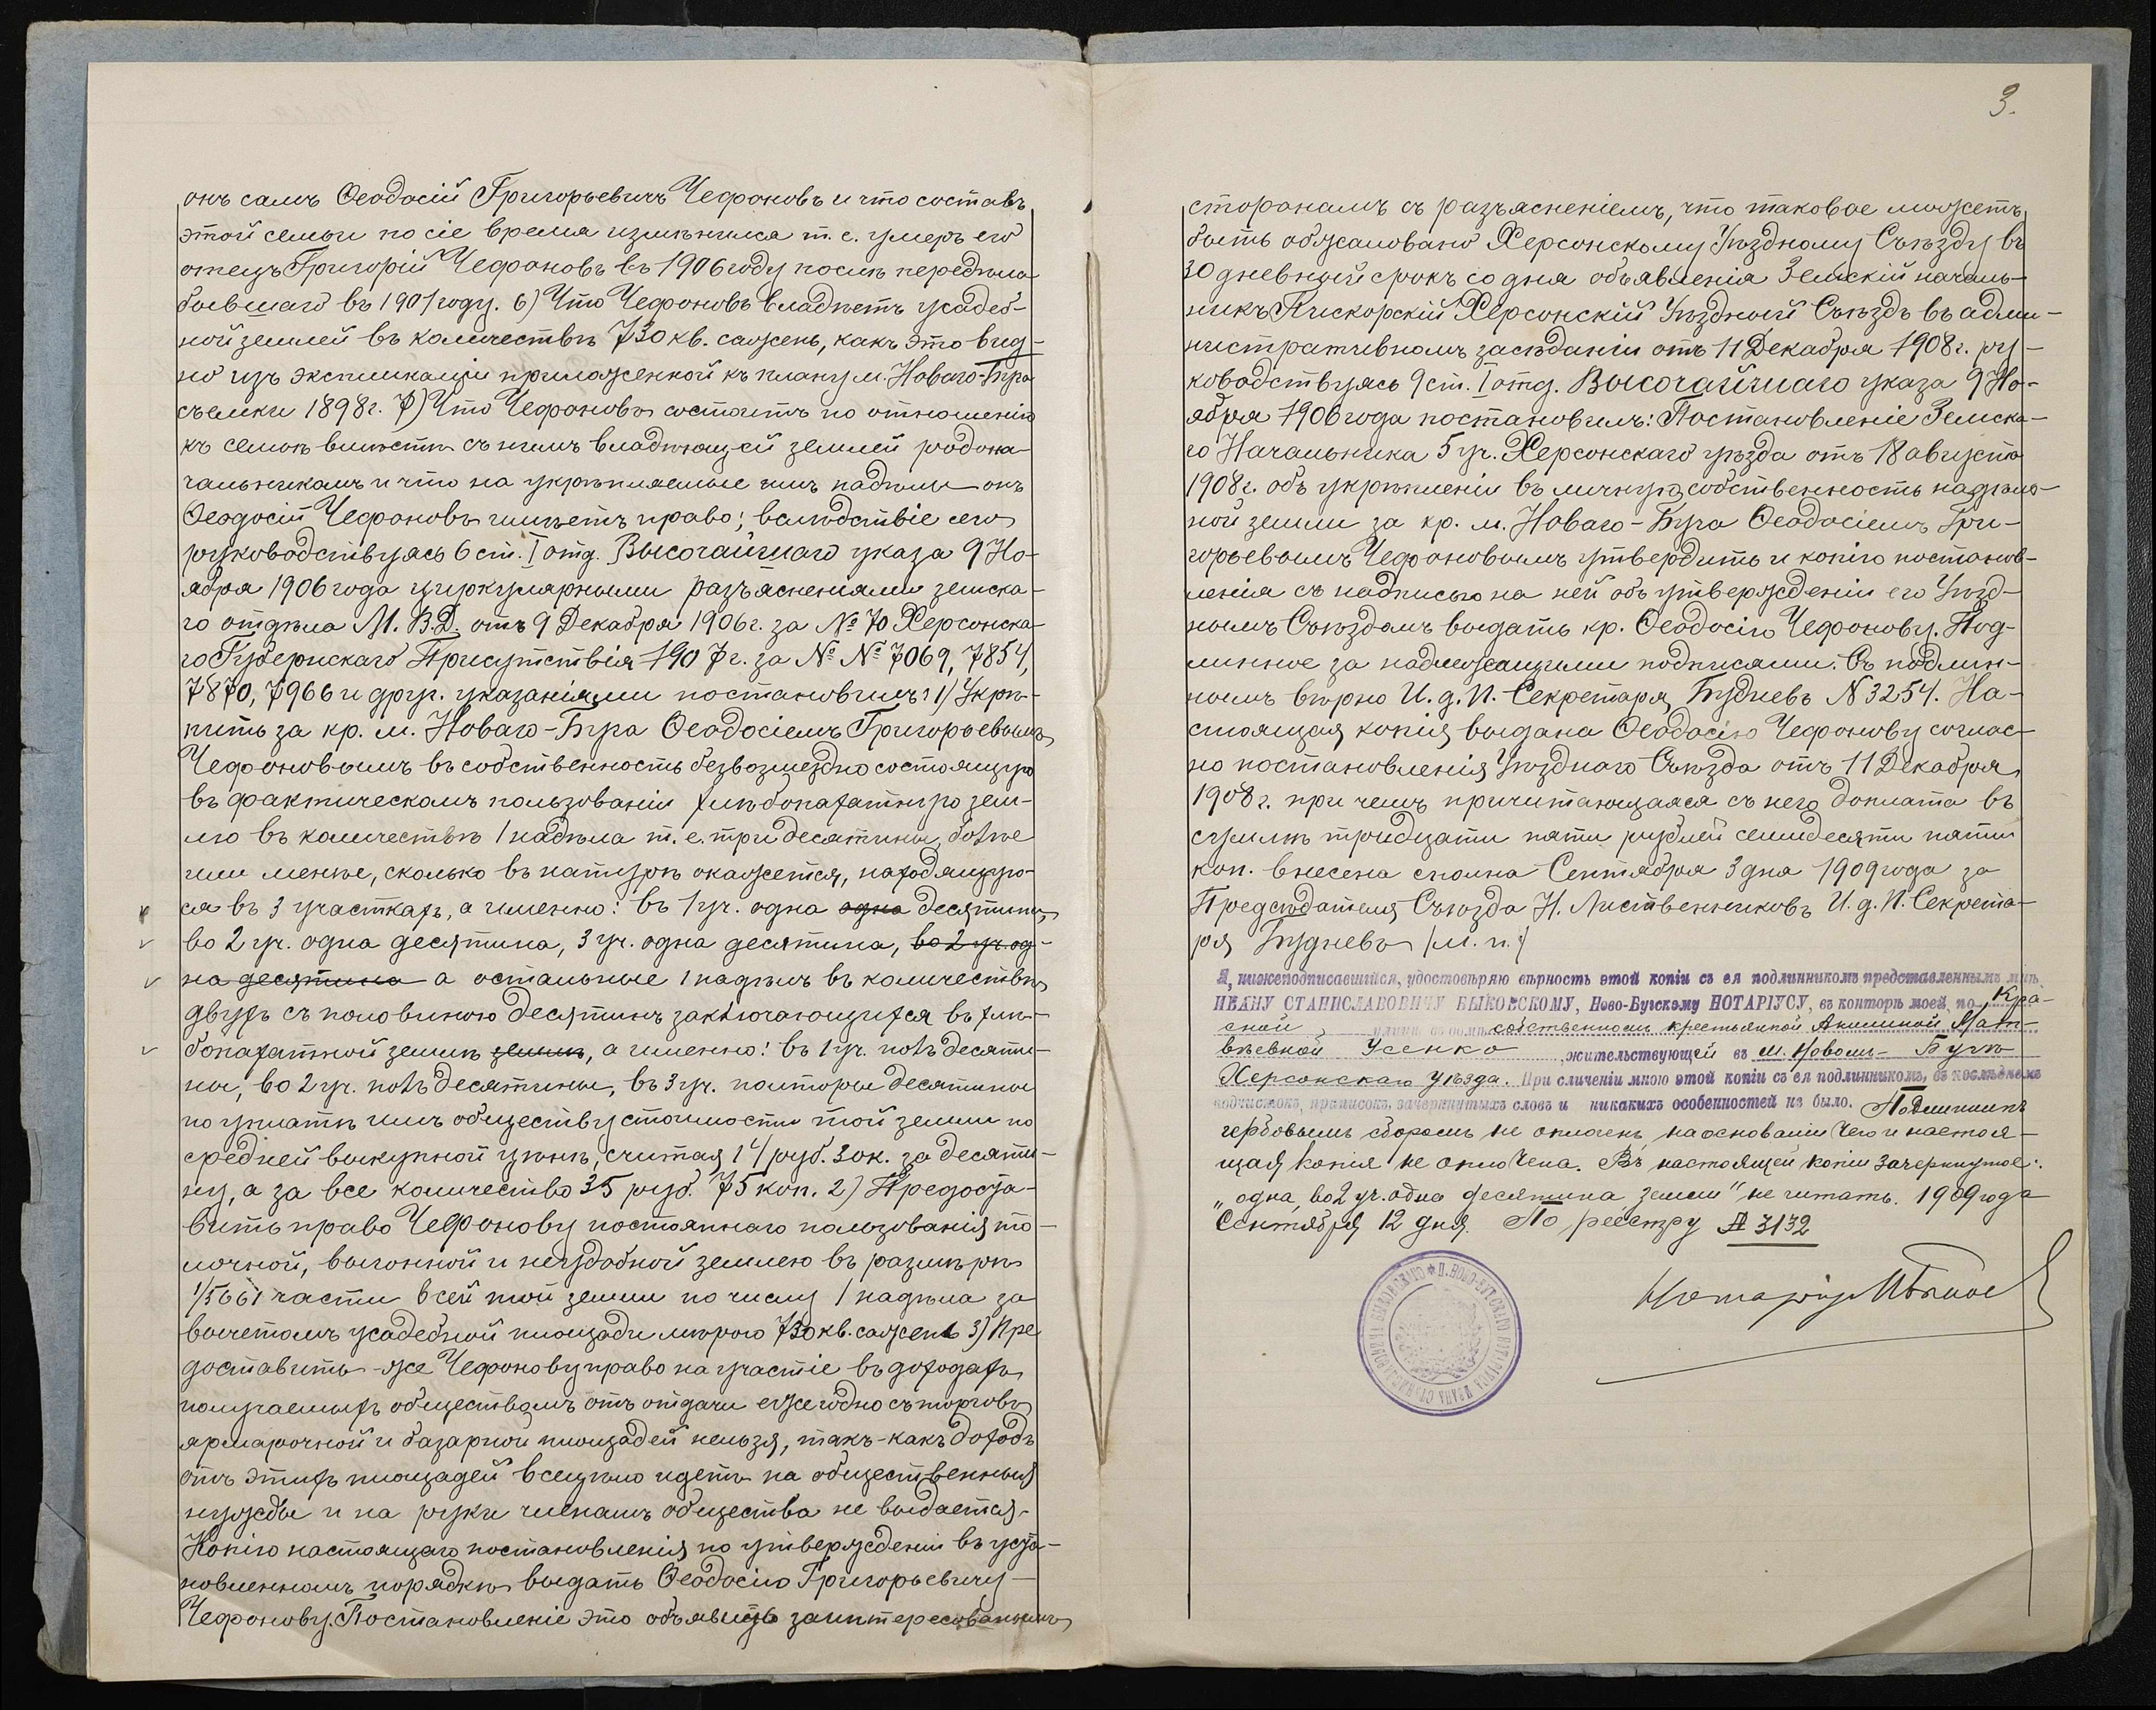 онъ самъ Ѳеодосій Григорьевичъ Чефоновъ и что составъ
этой семьи по сіе время измѣнился т. е. умеръ его
отецъ Григорій Чефоновъ въ 1906 году послѣ передѣла
бывшаго въ 1901 году. 6) Что Чефоновъ владѣетъ усадеб-
ной землей въ количествѣ 730 кв. сажень, какъ это вид-
но изъ экспликаціи приложенной къ плану м. Новаго-Буга
съемки 1898 г. 7) Что Чефоновъ состоитъ по отношенію
къ семьѣ вмѣстѣ съ нимъ владѣющей землей родона-
чальникомъ и что на укрѣпляемые имъ надѣлы онъ
Ѳеодосій Чефоновъ имѣетъ право; вслѣдствіе сего
руководствуясь 6 ст. I отд. Высочайшаго указа 9 Но-
ября 1906 года циркулярными разъясненіями земска-
го отдѣла М. В. Д. отъ 9 Декабря 1906 г. за № 70 Херсонска-
го Губернскаго Присутствія 1907 г. за № № 7069, 7854,
7870, 7966 и друг. указаніями постановилъ: 1) Укрѣ-
пить за кр. м. Новаго-Буга Ѳеодосіемъ Григорьевымъ
Чефоновымъ въ собственность безвозмездно состоящую
въ фактическомъ пользованіи хлѣбопахатную зем-
лю въ количествѣ 1 надѣла т. е. три десятины, болѣе
или менѣе, сколько въ натурѣ окажется, находящую-
ся въ 3 участкахъ, а именно: въ 1 уч. одна одна десятина,
во 2 уч. одна десятина, 3 уч. одна десятина, во 2 уч. од-
на десятина а остальные 1 надѣлъ въ количествѣ
двухъ съ половиною десятинъ заключающихся въ хлѣ-
бопахатной землѣ земли, а именно: въ 1 уч. полъ десяти-
ны, во 2 уч. полъ десятины, въ 3 уч. полторы десятины
по уплатѣ имъ обществу стоимости той земли по
средней выкупной цѣнѣ, считая 14 руб. 30 к. за десяти-
ну, а за все количество 35 руб. 75 коп. 2) Предоста-
вить право Чефонову постояннаго пользованія то-
лочной, выгонной и неудобной землею въ размѣрѣ
1/5661 части всей той земли по числу 1 надѣла за
вычетомъ усадебной площади мѣрою 730 кв. сажень 3) Пре
доставить-же Чефонову право на участіе въ доходахъ
получаемыхъ обществомъ отъ отдачи ежегодно съ торговъ
ярмарочной и базарной площадей нельзя, такъ-какъ доходъ
отъ этихъ площадей всецѣло идетъ на общественныя
нужды и на руки членамъ общества не выдается.
Копію настоящаго постановленія по утвержденіи въ уста-
новленномъ порядкѣ выдать Ѳеодосію Григорьевичу
Чефонову. Постановленіе это объявить заинтересованнымъ
3.
сторонамъ съ разъясненіемъ, что таковое можетъ
быть обжаловано Херсонскому Уѣздному Съѣзду въ
30 дневный срокъ со дня объявленія Земскій началь-
никъ Пискорскій Херсонскій Уѣздный Съѣздъ въ адми-
нистративномъ засѣданіи отъ 11 Декабря 1908 г. ру-
ководствуясь 9 ст. I отд. Высочайшаго указа 9 Но-
ября 1906 года постановилъ: Постановленіе Земска-
го Начальника 5 уч. Херсонскаго уѣзда отъ 18 августа
1908 г. объ укрѣпленіи въ личную собственность надѣль-
ной земли за кр. м. Новаго-Буга Ѳеодосіемъ Гри-
горьевымъ Чефоновымъ утвердить и копію постанов-
ленія съ надписью на ней объ утвержденіи его Уѣзд-
нымъ Съѣздомъ выдать кр. Ѳеодосію Чефонову. Под-
линное за надлежащими подписями. Съ подлин-
нымъ вѣрно И. д. И.-Секретаря Будневъ N 3254. На-
стоящая копія выдана Ѳеодосію Чефонову соглас-
но постановленія Уѣзднаго Съѣзда отъ 11 Декабря
1908 г. при чемъ причитающаяся съ него доплата въ
суммѣ тридцати пяти рублей семидесяти пяти
коп. внесена сполна Сентября 3 дня 1909 года за
Предсѣдателя Съѣзда Н. Лиственниковъ И. д. И. Секрета-
ря Будневъ /м. п./
Я, нижеподписавшійся, удостовѣряю вѣрность этой копіи съ ея подлинникомъ представленнымъ мнѣ,
ИВАНУ СТАНИСЛАВОВИЧУ БЫКОВСКОМУ, Ново-Бугскому НОТАРІУСУ, въ конторѣ моей, по Кра-
сной улицѣ въ домѣ собственномъ крестьянкой Акилиной Мат-
вѣевной Усенко жительствующей въ м. Новомъ-Бугѣ
Херсонскаго уѣзда. При сличеніи мною этой копіи съ ея подлинникомъ, въ послѣднемъ
подчистокъ, приписокъ, зачеркнутыхъ словъ и никакихъ особенностей не было. Подлинникъ
гербовымъ сборомъ не оплоченъ, на основаніи чего и настоя-
щая копія не оплочена. Въ настоящей копіи зачеркнутое:
"одна, во 2 уч. одна десятина земли" не читать. 1909 года
Сентября 12 дня. По реестру № 3132
Нотаріусъ